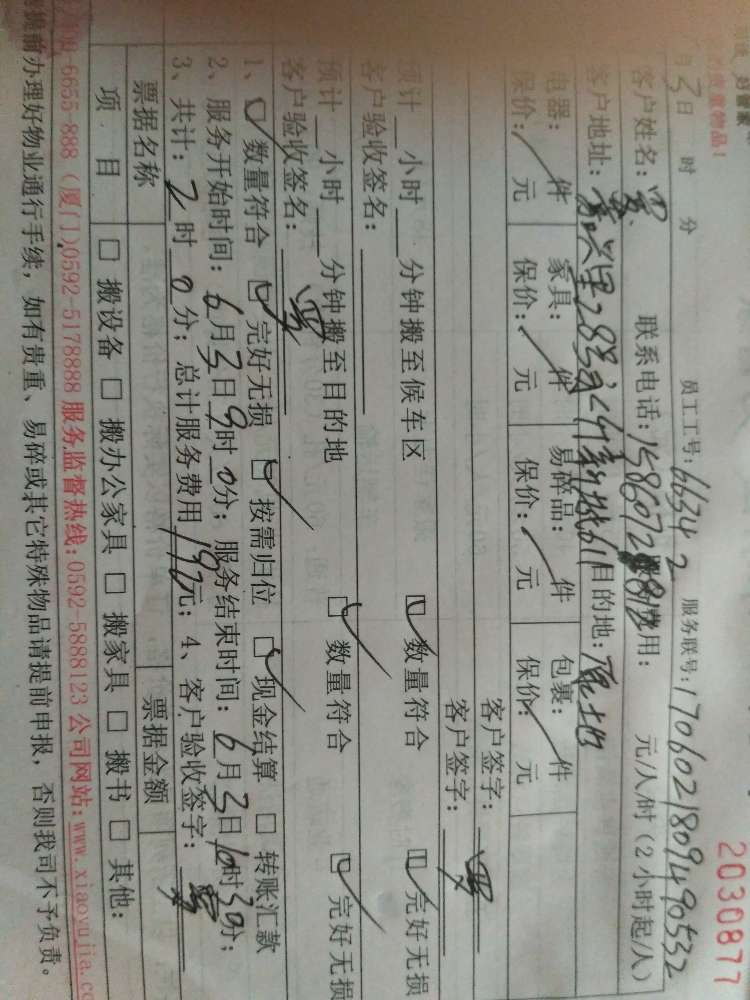 2030877
月3日 时 分 员工工号:66342 服务联号:170602180949 0532
客户姓名: 联系电话: 费用: 元/人/时(2小时起/人)
客户地址: 目的地:
电器: 件 家具: 件 易碎品: 件 包裹: 件
保价: 元 保价: 元 保价: 元 保价: 元
客户签字:
客户签字:
预计 小时 分钟搬至候车区 数量符合 完好无损
客户验收签名:
预计 小时 分钟搬至目的地 数量符合 完好无损
客户验收签名:
1、 数量符合 完好无损 按需归位 现金结算 转账汇款
2、服务开始时间:6月3日9时0分; 服务结束时间:6月3日10时30分;
3、共计:2时0分; 总计服务费用 元; 4、客户验收签字:
票据名称 票据金额
项 目 搬设备 搬办公家具 搬家具 搬书 其他:
400-6655-888(厦门)0592-5178888 服务监督热线:0592-5888123 公司网站:www.xiaoyujia.co
提前办理好物业通行手续,如有贵重、易碎或其它特殊物品请提前申报,否则我司不予负责。